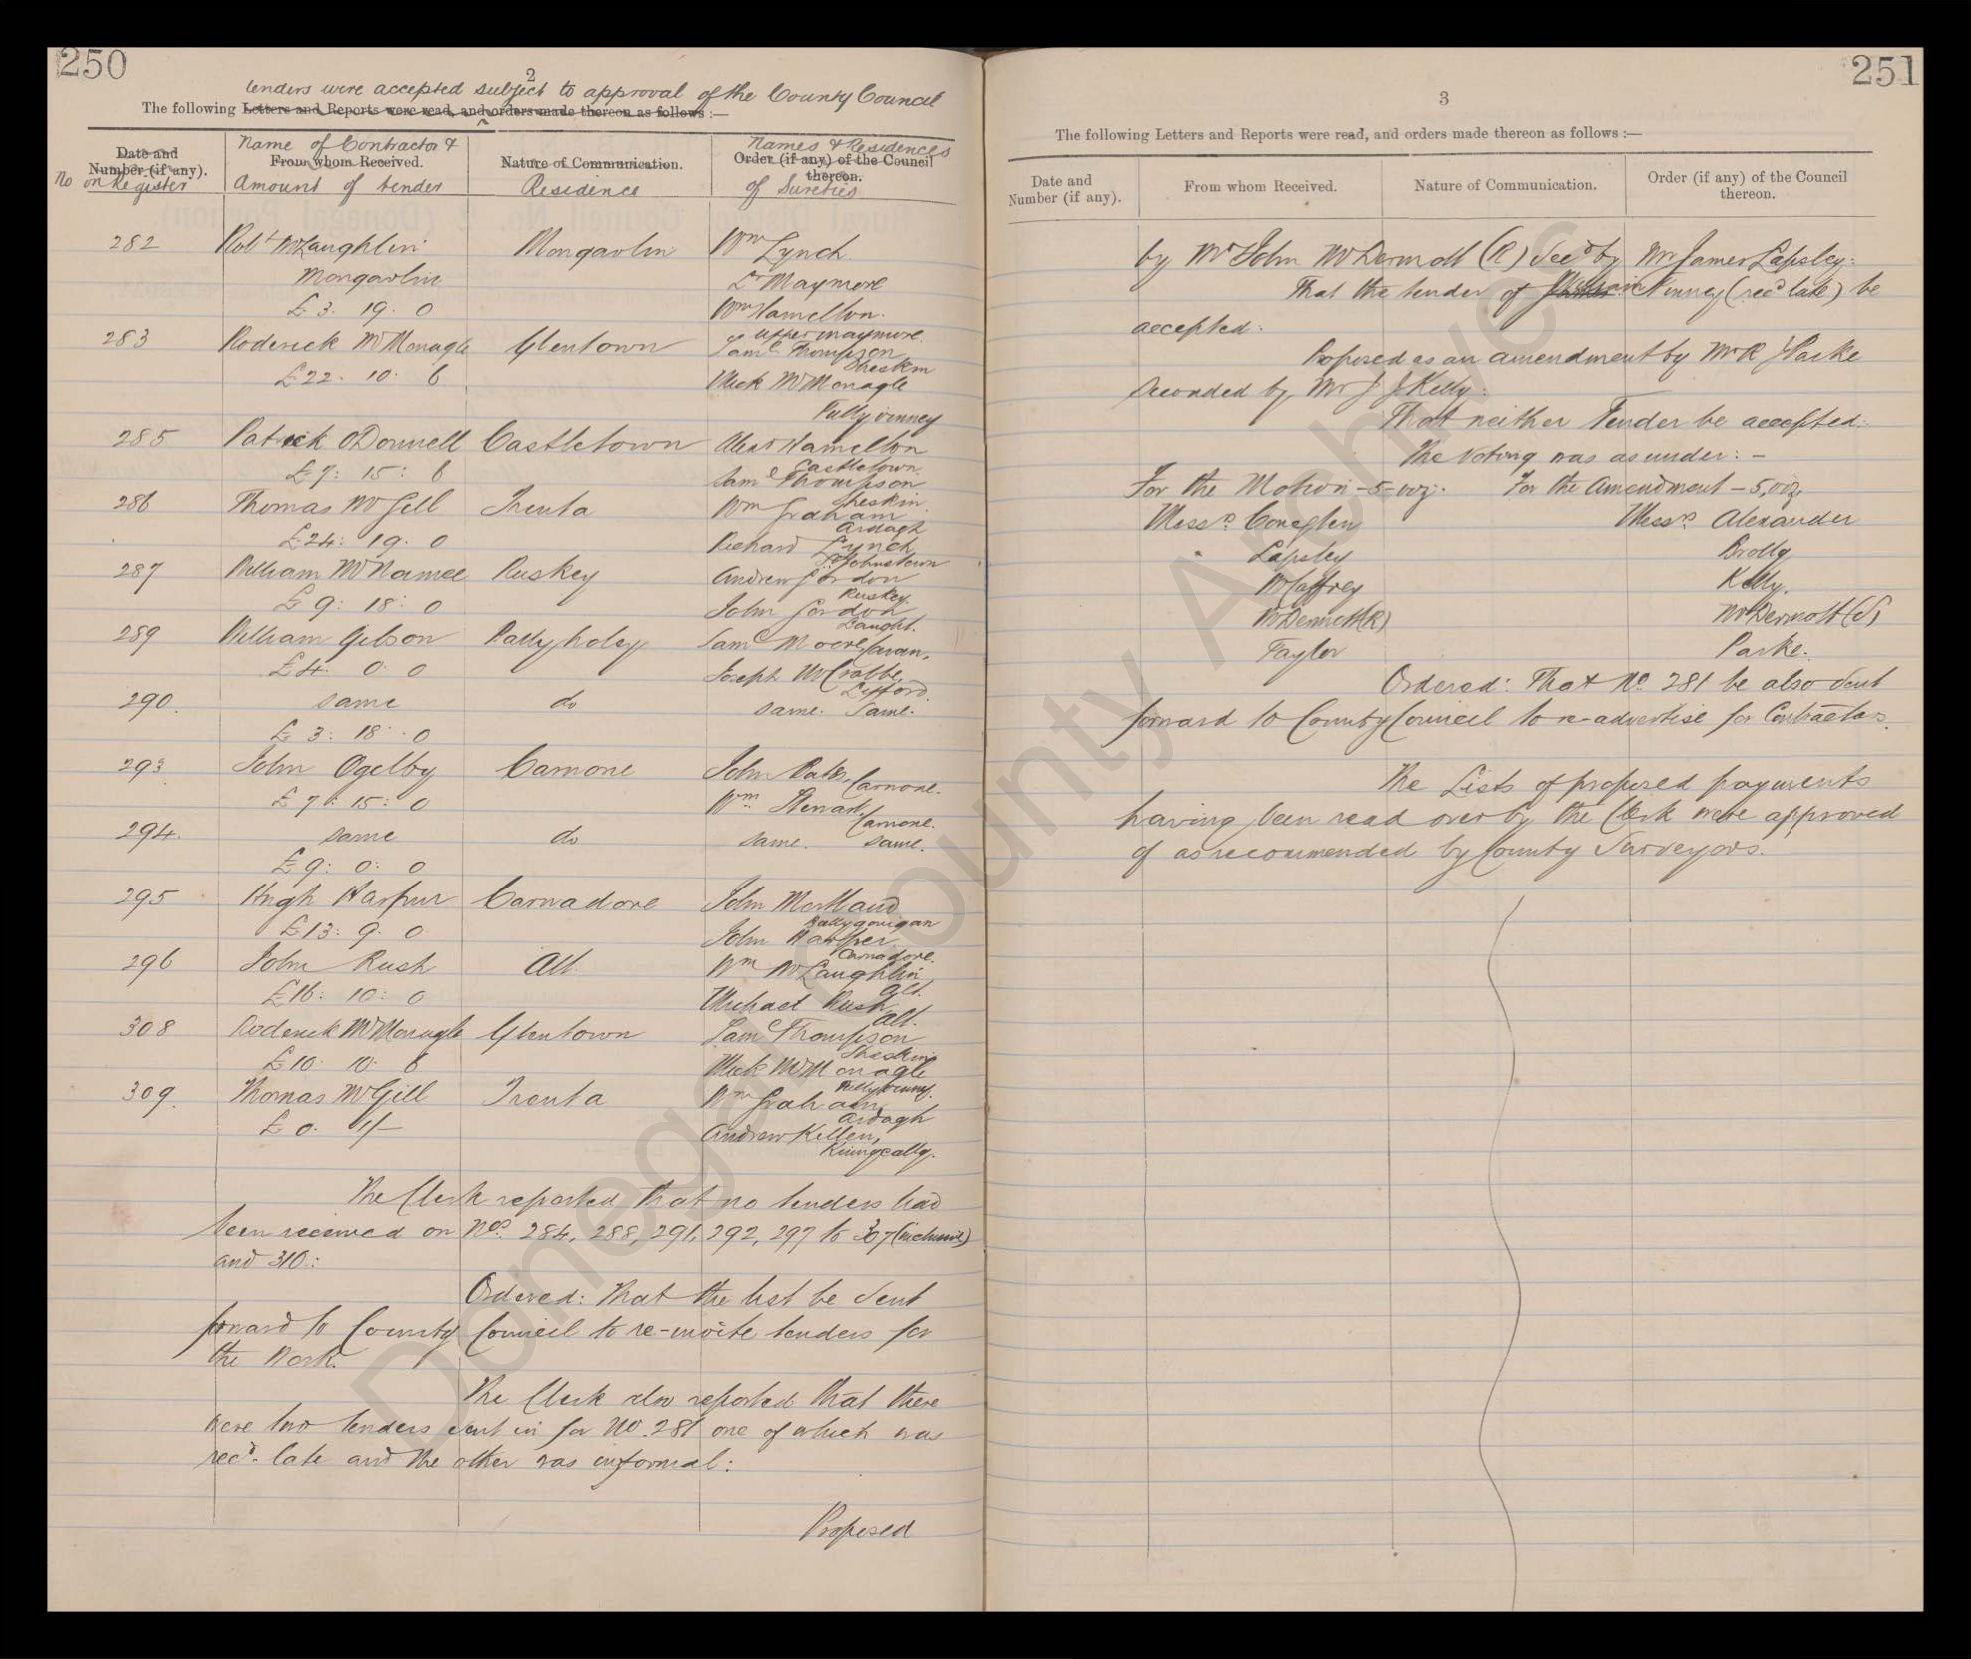 250
2
tenders were accepted subject to approval of the County Council
The following Letters and Reports were read, and orders made thereon as follows :—
Date and Number (if any).
No on Register
Name of Contractor &
From whom Received.
Amount of tender
Nature of Communication.
Residence
Names & Residences
Order (if any) of the Council thereon.
of Sureties
282 Robt McLaughlin Mongavlin Wm Lynch
Mongavlin Lr Maymore
£3. 19. 0 Wm Hamelton.
Upper Maymore
283 Roderick McMonagle Glentown Saml Thompson
Sheskin
£22. 10. 6 Mick McMonagle
Tullyvinney
285 Patrick O'Donnell Castletown Alexr Hamelton
Castletown.
£7: 15: 6 Saml Thompson
Sheskin.
286 Thomas McGill Trenta Wm Graham
Ardagh
£24: 19. 0 Richard Lynch
St Johnstown
287 William McNamee Ruskey Andrew Gordon
Ruskey.
£9: 18: 0 John Gordon
Taught.
289 William Gibson Ballyholey Saml Moore,
£4. 0. 0 Joseph McCrabbe,
Lifford.
290. same do same. same.
£3: 18. 0
293 John Ogelby Carnone John Baker,
Carnone.
£7: 15: 0 Wm Stewart,
Carnone.
294. same do same. same.
£9: 0: 0
295 Hugh Harpur Carnadore John Morland
Ballygonigan
£13: 9. 0 John Harper
Carnadore.
296 John Rush Alt Wm McLaughlin
Alt.
£16: 10: 0 Michael Rush
Alt.
308 Roderick McMonagle Glentown Saml Thompson
Sheskin
£10. 10. 6 Mick McMonagle
309. Thomas McGill Trenta Wm Graham,
Ardagh
£0. 1/- Andrew Killen,
The Clerk reported that no tenders had
been received on Nos. 284, 288, 291, 292, 297 to 307 (inclusive)
and 310:
Ordered: That the list be sent
forward to County Council to re-invite tenders for
the work.
The Clerk also reported that there
were two tenders sent in for No. 281 one of which was
recd. late and the other was informal:
Proposed
251
3
The following Letters and Reports were read, and orders made thereon as follows :—
Date and Number (if any).
From whom Received.
Nature of Communication.
Order (if any) of the Council thereon.
by Mr John McDermott (R) Secd by Mr James Lapsley:
That the tender of William Kinney (recd late) be
accepted:
Proposed as an amendment by Mr R J Parke
Seconded by Mr J J Kelly:
That neither Tender be accepted:
The Voting was as under: -
For the Motion - 5 - viz:- For the Amendment - 5, viz,
Messrs. Coneghen Messrs Alexander
" Lapsley Brolly
McCaffrey Kelly.
McDermott (R) McDermott (S)
Taylor Parke.
Ordered: That No. 281 be also sent
forward to County Council to re-advertise for Contractors.
The Lists of proposed payments
having been read over by the Clerk were approved
of as recommended by County Surveyors.
Donegal County Archives